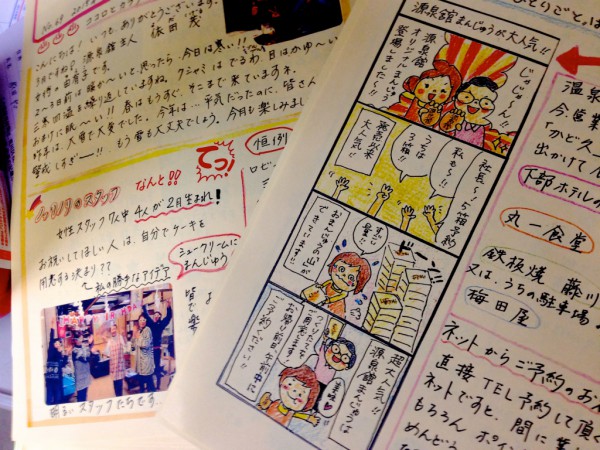 No.63
ココロとカラダ
いつもありがとうございます。
こんにちは!
源泉館主人
依田茂
と思ったら、今日は寒い!!
クシャミはでるわ、目はかゆ〜い
三寒四温を繰り返していますね。
おまけに眠〜い!!春はもうすぐそこまで来ていますネ。
昨年は、大雪で大変でした。今年は…平気だったのに、皆さん
警戒しすぎー!!もう雪も大丈夫でしょう。今月も楽しみまし
ノリノリのスタッフ
なんと!!
てっ!
恒例
ロビ
女性スタッフ7人中4人が2月生まれ!
お祝いしてほしい人は、自分でケーキを
用意する決まり??
〜私の勝手なアイデア
シュークリームに
まんじゅう
明るいスタッフたちです。
源泉館まんじゅうが大人気!!
じゃじゃ〜ん!!
源泉館
オリジナルまんじゅう
登場しました!!
社長〜5箱予約
私も〜!!
こっちは
3箱!!
発売以来
大人気!!
ドーン!!
すごい
量!!
おまんじゅうの山が
できています!!
超大人気!!
源泉館まんじゅうは
つくりたてを
ご用意します!!
お帰り前日午前中に
ご予約ください!
美味
とりごとは
温泉
今、営業
かど久
出かけて
下部ホテルの
丸一食堂
鉄板焼 藤川
又は、うちの駐車場の
梅田屋
ネットからご予約のお
直接TEL予約して頂く
ネットですと、間に業
もちろん ポイン
めんどう